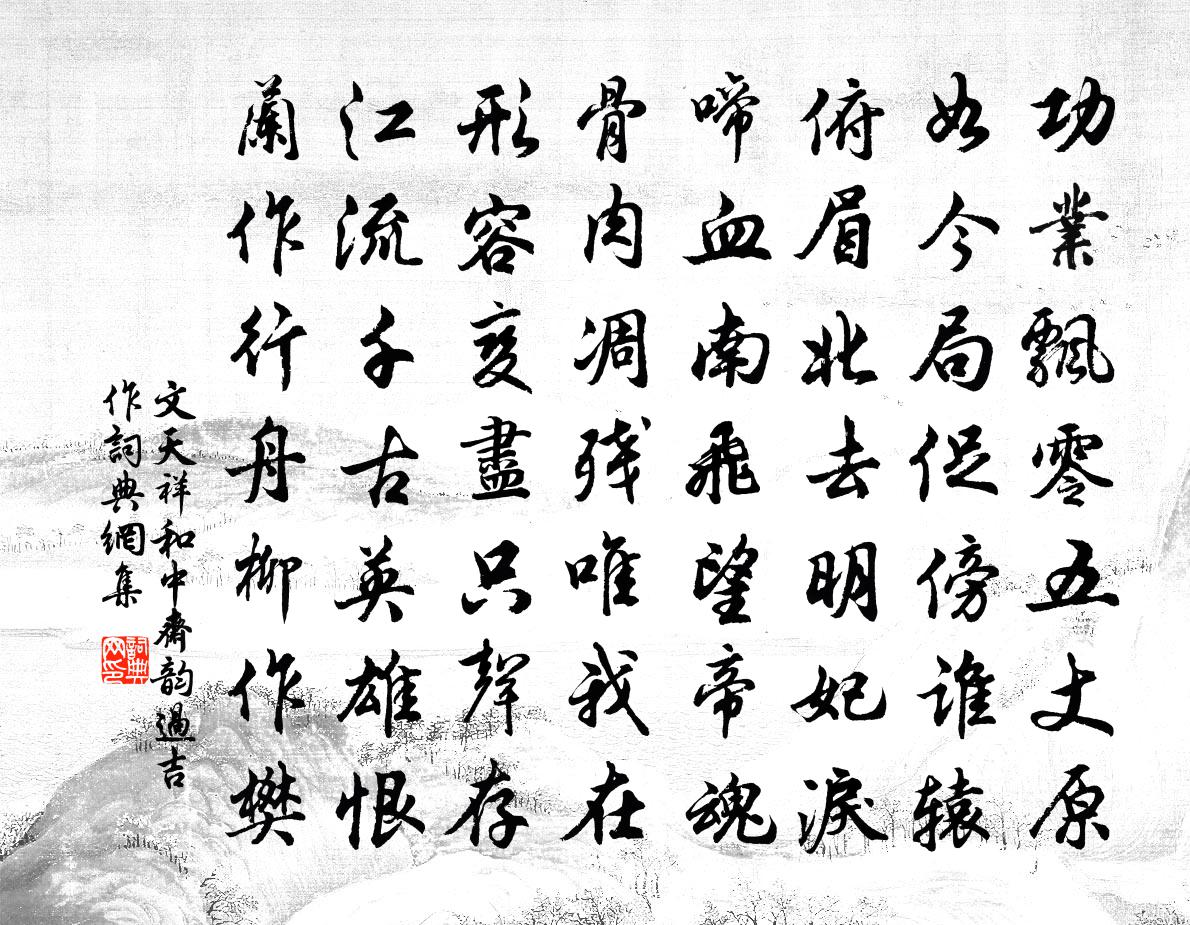 功業飄零五丈原
如今局促傍谁辕
俯眉北去明妃淚
啼血南飛望帝魂
骨肉凋残唯我在
形容变盡只聲存
江流千古英雄恨
蘭作行舟柳作樊
文天祥和中齋韵過吉
作詞典網集
詞典网印